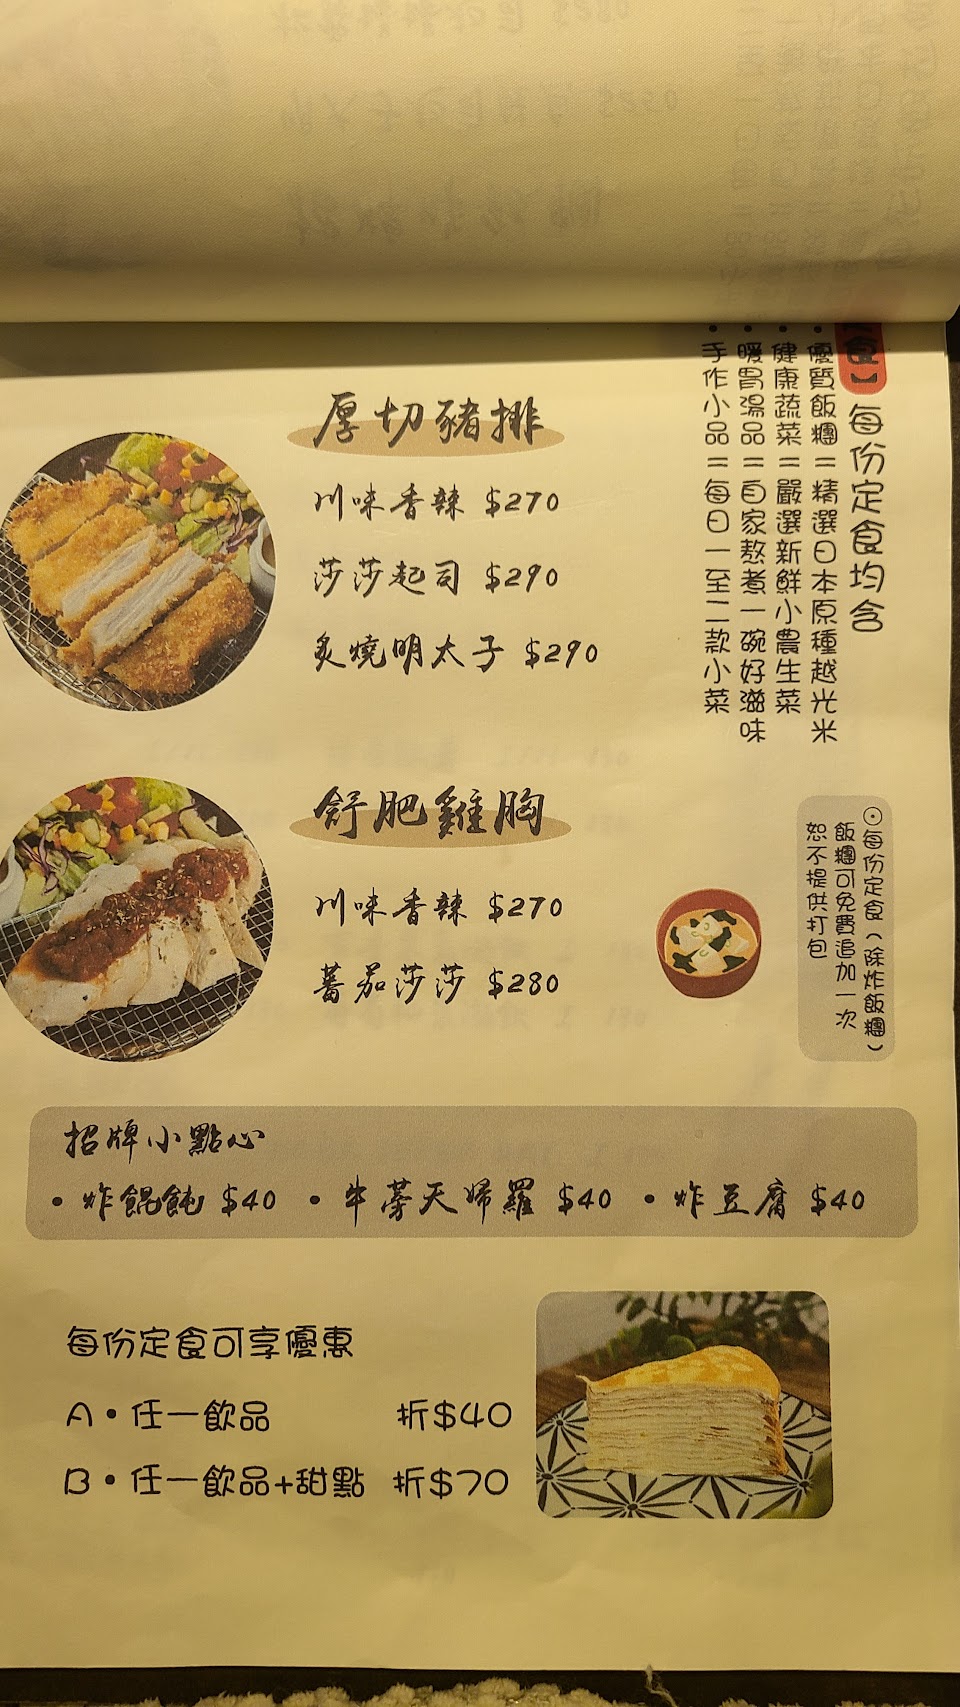 食】每份定食均含
•優質飯糰=精選日本原種越光米
•健康蔬菜=嚴選新鮮小農生菜
•暖胃湯品=自家熬煮一碗好滋味
•手作小品=每日一至二款小菜
厚切豬排
川味香辣 $270
莎莎起司 $290
炙燒明太子 $290
舒肥雞胸
川味香辣 $270
蕃茄莎莎 $280
⊙每份定食(除炸飯糰)
飯糰可免費追加一次
恕不提供打包
招牌小點心
•炸餛飩 $40 •牛蒡天婦羅 $40 •炸豆腐 $40
每份定食可享優惠
A•任一飲品 折$40
B•任一飲品+甜點 折$70